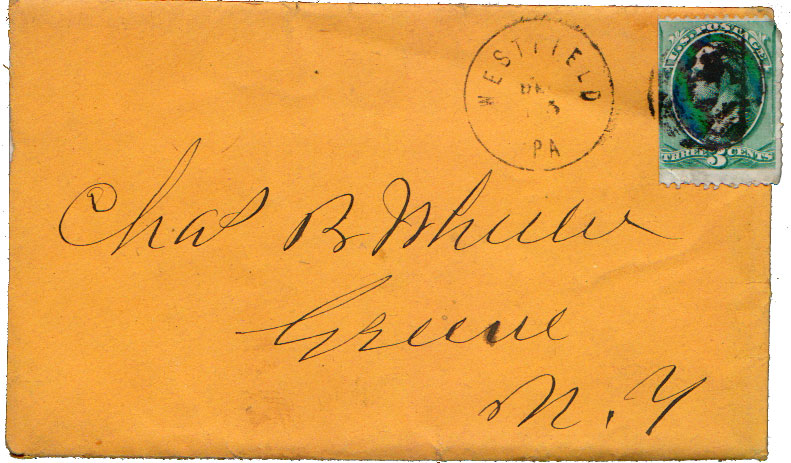 WESTFIELD
DE
5
PA
U.S. POSTAGE
THREE 3 CENTS
Chas B Wheeler
Greene
N. Y